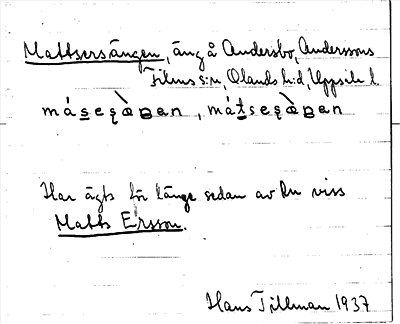 Mattsersängen, äng å Andersbo, Anderssons
Films s:n, Olands h:d, Uppsala l.
Har ägts för länge sedan av en viss
Matts Ersson.
Hans Tillman 1937